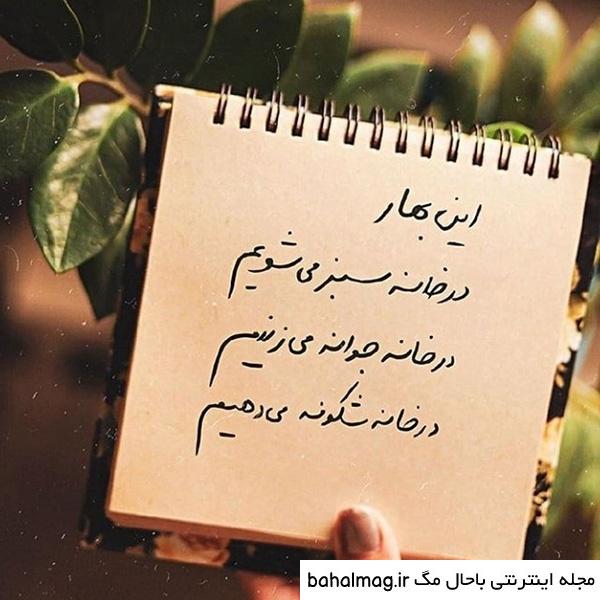 این بهار
در خانه سبز می شویم
در خانه جوانه می زنیم
در خانه شکوفه می دهیم
مجله اینترنتی باحال مگ bahalmag.ir